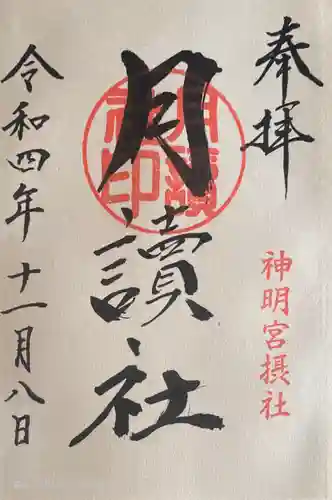 奉拝
神明宮摂社
月讀社
月讀社印
令和四年十一月八日